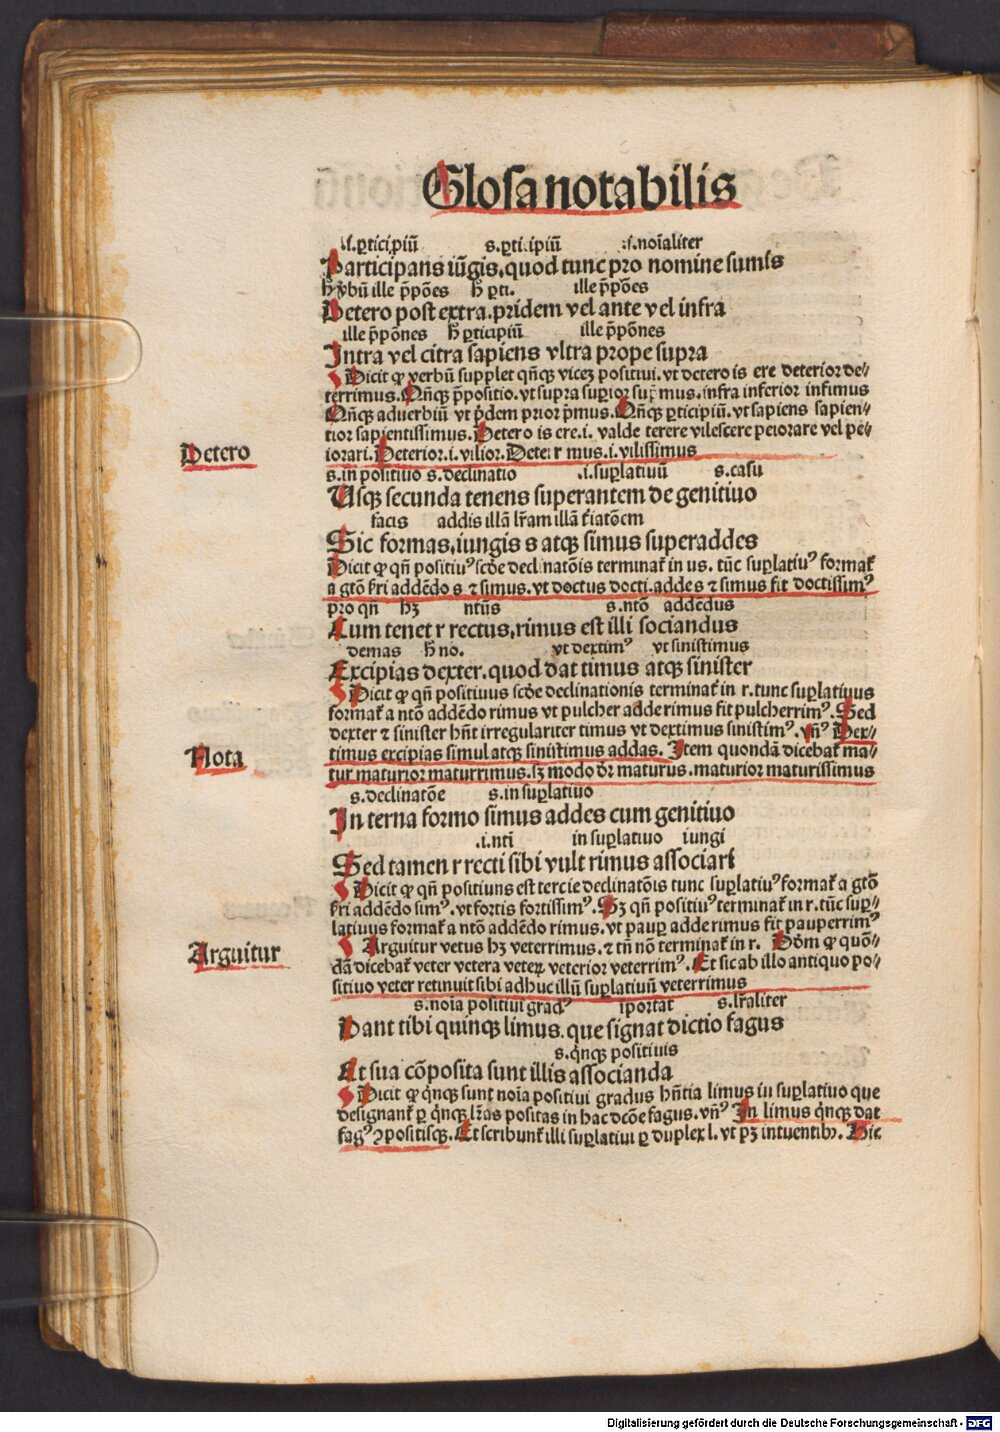 Glosa notabilis
.s.ꝑticipiū s.ꝑticipiū .s.noīaliter
Participans iūgis, quod tunc pro nomine sumis
ille p̄pōes ille p̄pōes
Detero post extra. pridem vel ante vel infra
ille p̄pōnes h̄ ꝑticipiū ille p̄pōnes
Intra vel citra sapiens vltra prope supra
Dicit ꝙ verbū supplet qn̄qꝫ viceꝫ positiui. vt detero is ere deterior de⸗
terrimus. Qn̄qꝫ p̄positio. vt supra suꝑior supꝛemus. infra inferior infimus
Qn̄qꝫ aduerbiū vt pͥdem prior pͥmus. Qn̄qꝫ ꝑticipiū. vt sapiens sapien⸗
tior sapientissimus. Detero is ere .i. valde terere vilescere peiorare vel pe⸗
Detero
iorari. Deterior .i. vilior. Deterrimus .i. vilissimus
s.in positiuo s.declinatio .i.suꝑlatiuū s.casu
Usqꝫ secunda tenens superantem de genitiuo
facis addis illā lr̄am illā t̄iatōem
Sic formas, iungis s atqꝫ simus superaddes
Dicit ꝙ qn̄ positiuꝰ scd̄e declinatōis terminat̄ in us. tūc suꝑlatiuꝰ format̄
a gtō sri addēdo s ⁊ simus. vt doctus docti. adde s ⁊ simus fit doctissimꝰ
pro qn̄ hꝫ ntūs s.ntō addēdus
Cum tenet r rectus, rimus est illi sociandus
demas h̄ no. vt dextimꝰ vt sinistimus
Excipias dexter. quod dat timus atqꝫ sinister
Dicit ꝙ qn̄ positiuus scd̄e declinationis terminat̄ in r. tunc suꝑlatiuus
format̄ a ntō addēdo rimus vt pulcher adde rimus fit pulcherrimꝰ. Sed
dexter ⁊ sinister hn̄t irregulariter timus vt dextimus sinistimꝰ. vn̄ꝰ Dex⸗
Nota
timus excipias simul atqꝫ sinistimus addas. Item quondā dicebat̄ ma⸗
tur maturior maturrimus. sꝫ modo dr̄ maturus. maturior maturissimus
s.declinatōe s.in suꝑlatiuo
In terna formo simus addes cum genitiuo
.i.nti in suꝑlatiuo iungi
Sed tamen r recti sibi vult rimus associari
Dicit ꝙ qn̄ positiuus est tercie declinatōis tunc suꝑlatiuꝰ format̄ a gtō
sri addēdo simꝰ. vt fortis fortissimꝰ. Sꝫ qn̄ positiuꝰ terminat̄ in r. tūc suꝑ⸗
latiuus format̄ a ntō addēdo rimus. vt pauꝑ adde rimus fit pauperrimꝰ
Arguitur
Arguitur vetus hꝫ veterrimus. ⁊ tn̄ nō terminat̄ in r. Dd̄m ꝙ quō⸗
dā dicebat̄ veter vetera veteꝝ veterior veterrimꝰ. Et sic ab illo antiquo po⸗
sitiuo veter retinuit sibi adhuc illū suꝑlatiuū veterrimus
s.noīa positiui gradꝰ īportat s.lr̄aliter
Dant tibi quinqꝫ limus. que signat dictio fagus
s.qͥnqꝫ positiuis
Et sua cōposita sunt illis associanda
Dicit ꝙ qͥnqꝫ sunt noīa positiui gradus hn̄tia limus iu suꝑlatiuo que
designant̄ ꝑ qͥnqꝫ lr̄as positas in hac dcōe fagus. vn̄ꝰ In limus qͥnqꝫ dat
fagꝰ ꝯpositisqꝫ. Et scribunt̄ illi suꝑlatiui ꝑ duplex l. vt pꝫ intuentibꝰ. Hic
Digitalisierung gefördert durch die Deutsche Forschungsgemeinschaft - DFG